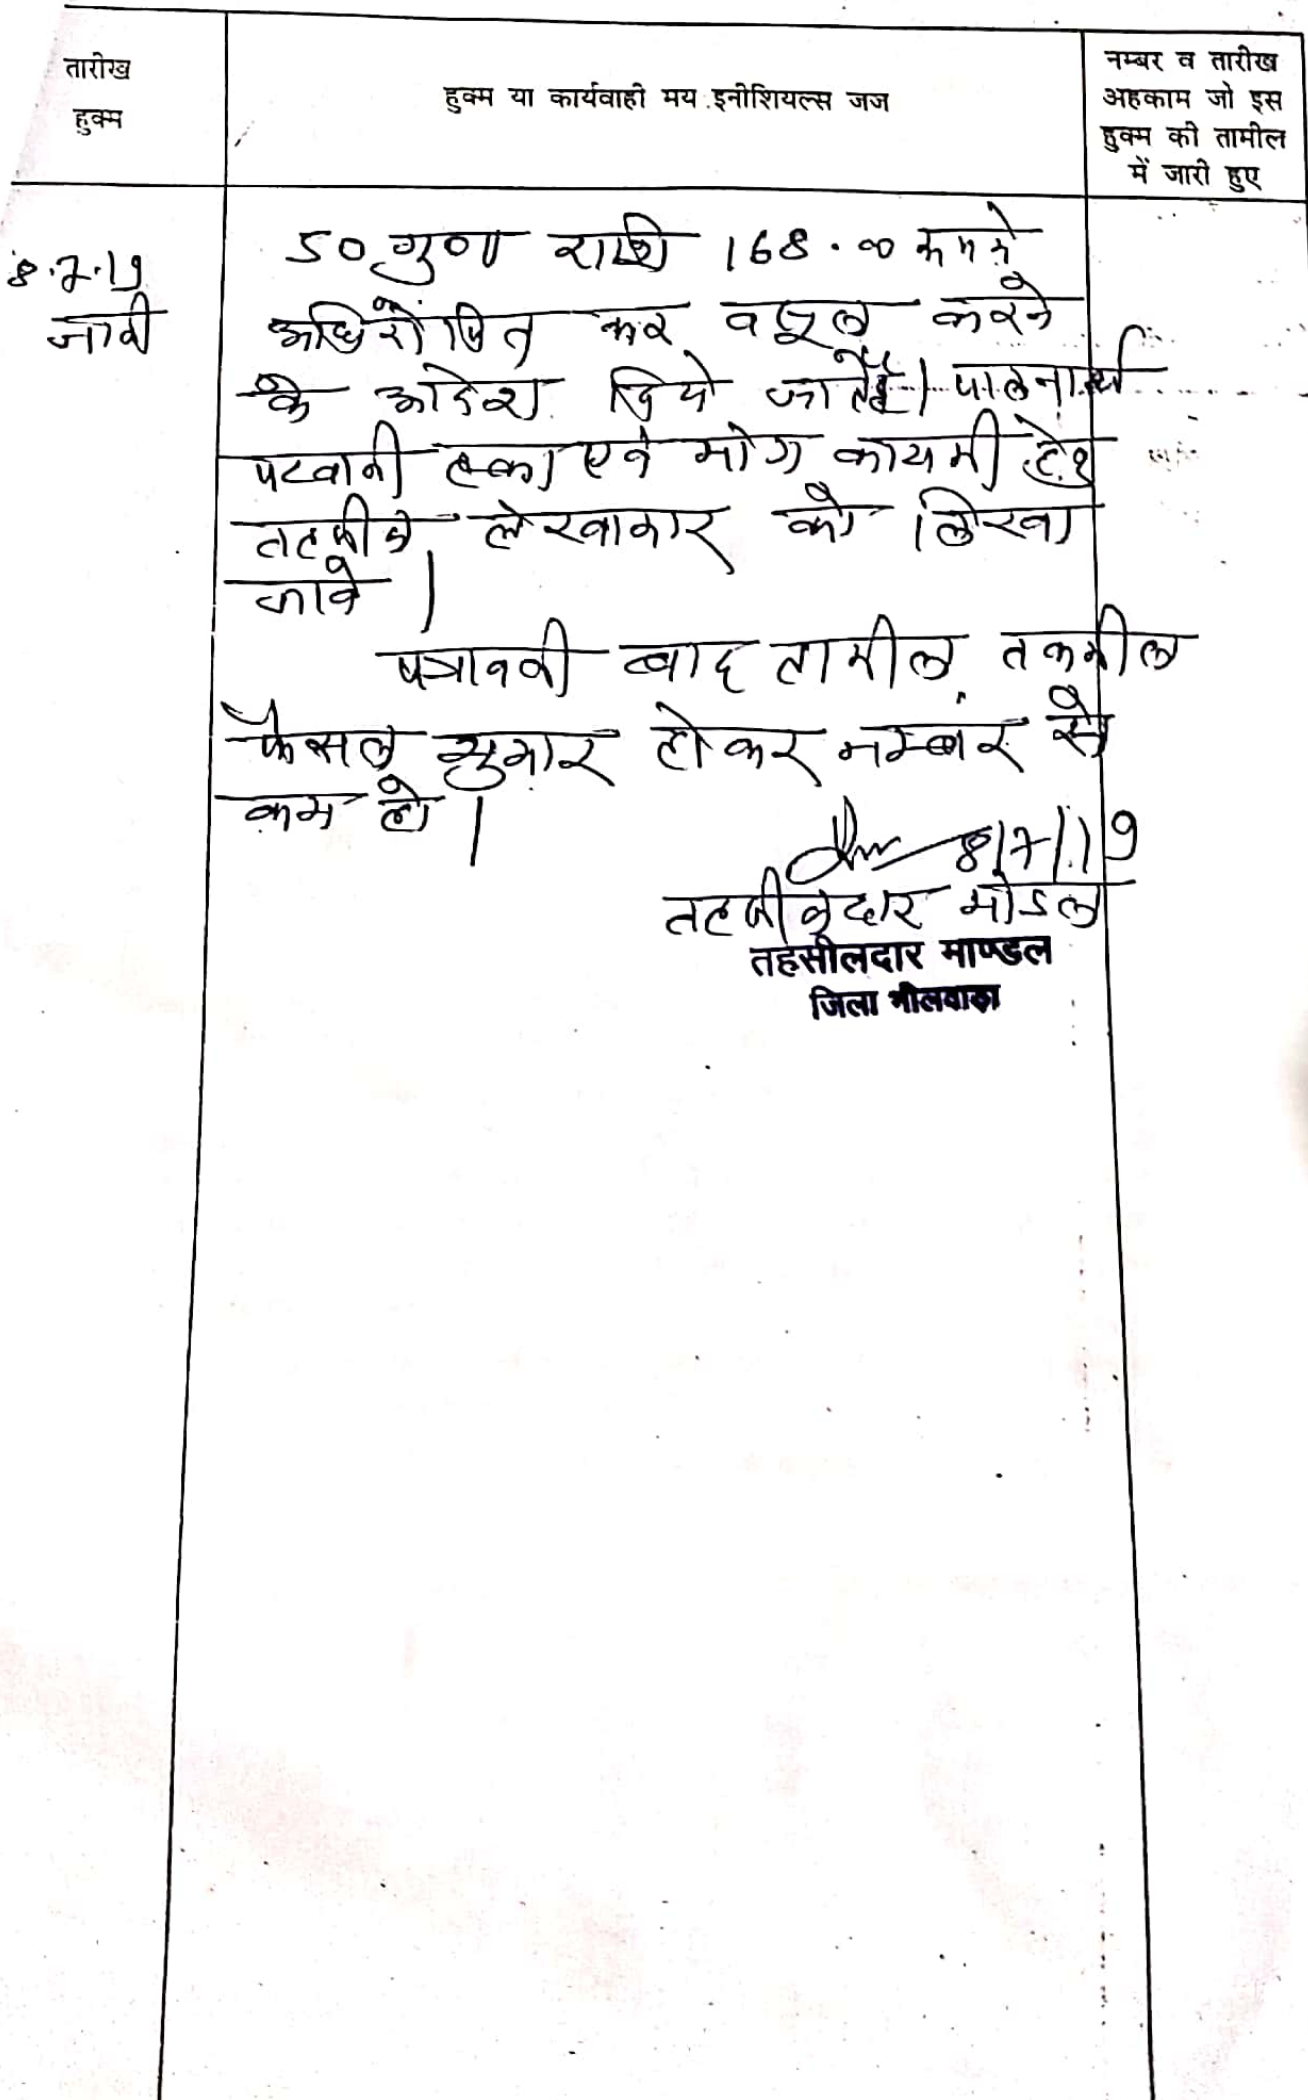 तारीख
हुक्म
हुक्म या कार्यवाही मय इनीशियल्स जज
नम्बर व तारीख
अहकाम जो इस
हुक्म की तामील
में जारी हुए
8.7.19
जारी
50 गुणा राशि 168.00 रूपये
अधिरोपित कर वसूल करने
के आदेश दिये जाते है। पालनार्थ
पटवारी हल्का एवं मांग कायमी हेतु
तहसील लेखाकार को लिखा
जावे।
पत्रावली बाद तामील तकमील
फैसल शुमार होकर नम्बर से
कम हो।
8/7/19
तहसीलदार मांडल
तहसीलदार माण्डल
जिला भीलवाडा